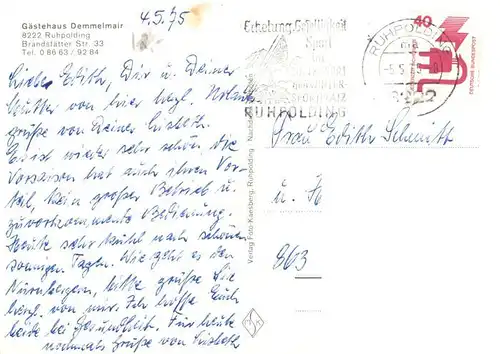 Gästehaus Demmelmair
8222 Ruhpolding
Brandstätter Str. 33
Tel. 0 86 63 / 92 84
4.5.75
Liebe Edith, Dir u. Deiner
Mutter von hier herzl.
grüße von Deiner Lisbeth.
Es ist wieder sehr schön die
Vorsaison hat auch ihren Vor-
teil, kein großer Betrieb u.
zuvorkommende Bedienung.
Heute sehr kühl nach schönen
sonnigen Tagen. Wie geht es den
Nürnbergern, bitte grüße Sie
herzl. von mir. Ich hoffe Euch
beide bei Gesundheit. Für heute
nochmals Grüße von Lisbeth
Verlag Foto Kaesberg, Ruhpolding
Erholung, Geselligkeit
Sport
im
RUHPOLDING
RUHPOLDING
8222
40
DEUTSCHE BUNDESPOST
Frau Edith Schmitt
863